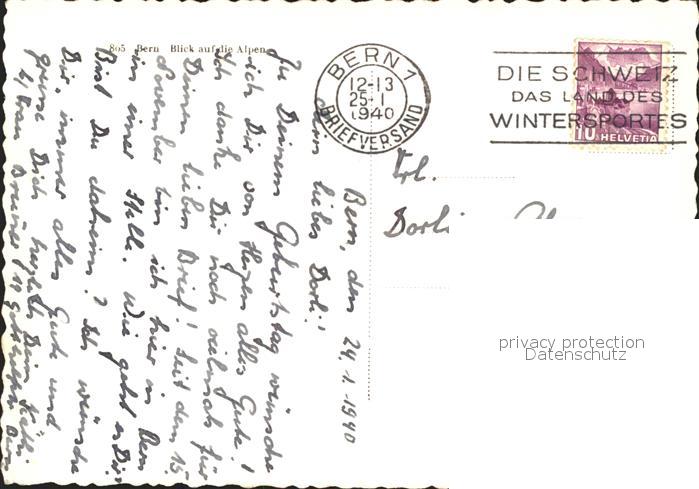 805 Bern Blick auf die Alpen
BERN 1
12-13
25·I
1940
BRIEFVERSAND
DIE SCHWEIZ
DAS LAND DES
WINTERSPORTES
10 HELVETIA
Frl.
Dorli
privacy protection
Datenschutz
Bern, den 24.1.1940
Mein liebes Dorli!
Zu Deinem Geburtstag wünsche
ich Dir von Herzen alles Gute!
Ich danke Dir noch vielmals für
Deinen lieben Brief! Seit dem 15.
November bin ich hier in Bern
in einer Stelle. Wie geht es Dir?
Bist Du daheim? Ich wünsche
Dir, immer alles Gute und
grüsse Dich herzlich Dein